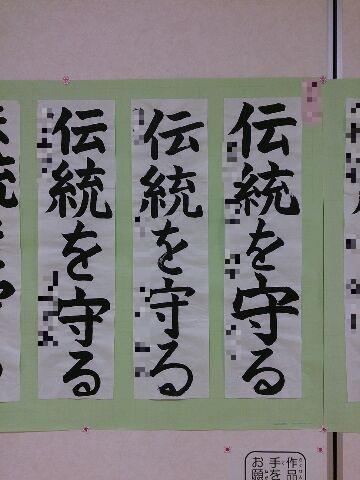 伝統を守る
伝統を守る
伝統を守る
作品
手を
お願